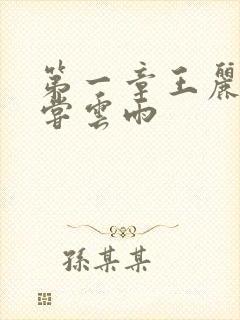 第一章王麗
嘗雲雨
孫某某